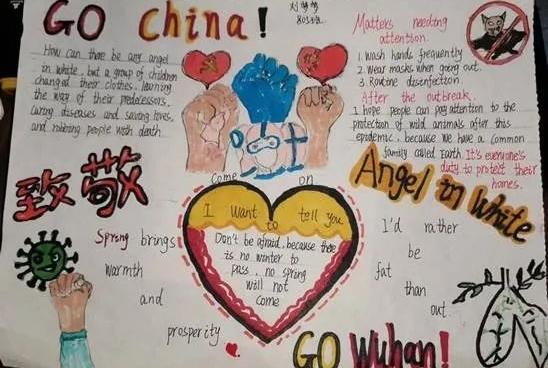 GO china!
刘梦梦
How can there be any angel
in white, but a group of children
changed their clothes, learning
the way of their predecessors,
curing diseases and saving lives,
and robbing people with death.
Matters needing
attention.
1. Wash hands frequently
2. Wear masks when going out.
3. Routine disinfection
After the outbreak.
I hope people can pay attention to the
protection of wild animals after this
epidemic, because we have a common
family called Earth. It's everyone's
duty to protect their
homes.
致敬
come on
Angel in White
I want to tell you
Don't be afraid, because there
is no winter to
pass, no spring
will not
come
Spring brings
warmth
and
prosperity
I'd rather
be
fat
than
out.
GO Wuhan!